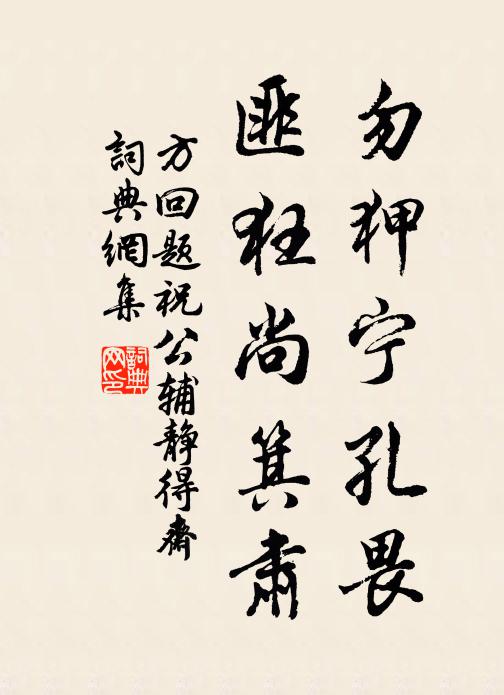 勿狎宁孔畏
匪狂尚箕肃
方回题祝公辅静得斋
詞典網集
詞典网印